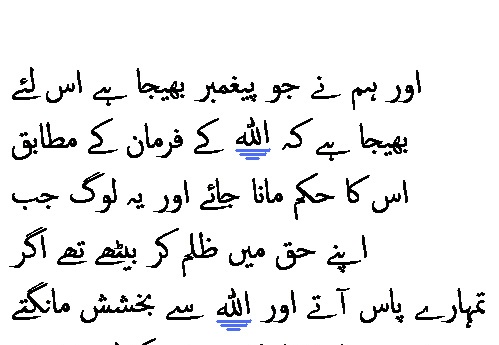 اور ہم نے جو پیغمبر بھیجا ہے اس لئے
بھیجا ہے کہ اللہ کے فرمان کے مطابق
اس کا حکم مانا جائے اور یہ لوگ جب
اپنے حق میں ظلم کر بیٹھے تھے اگر
تمہارے پاس آتے اور اللہ سے بخشش مانگتے